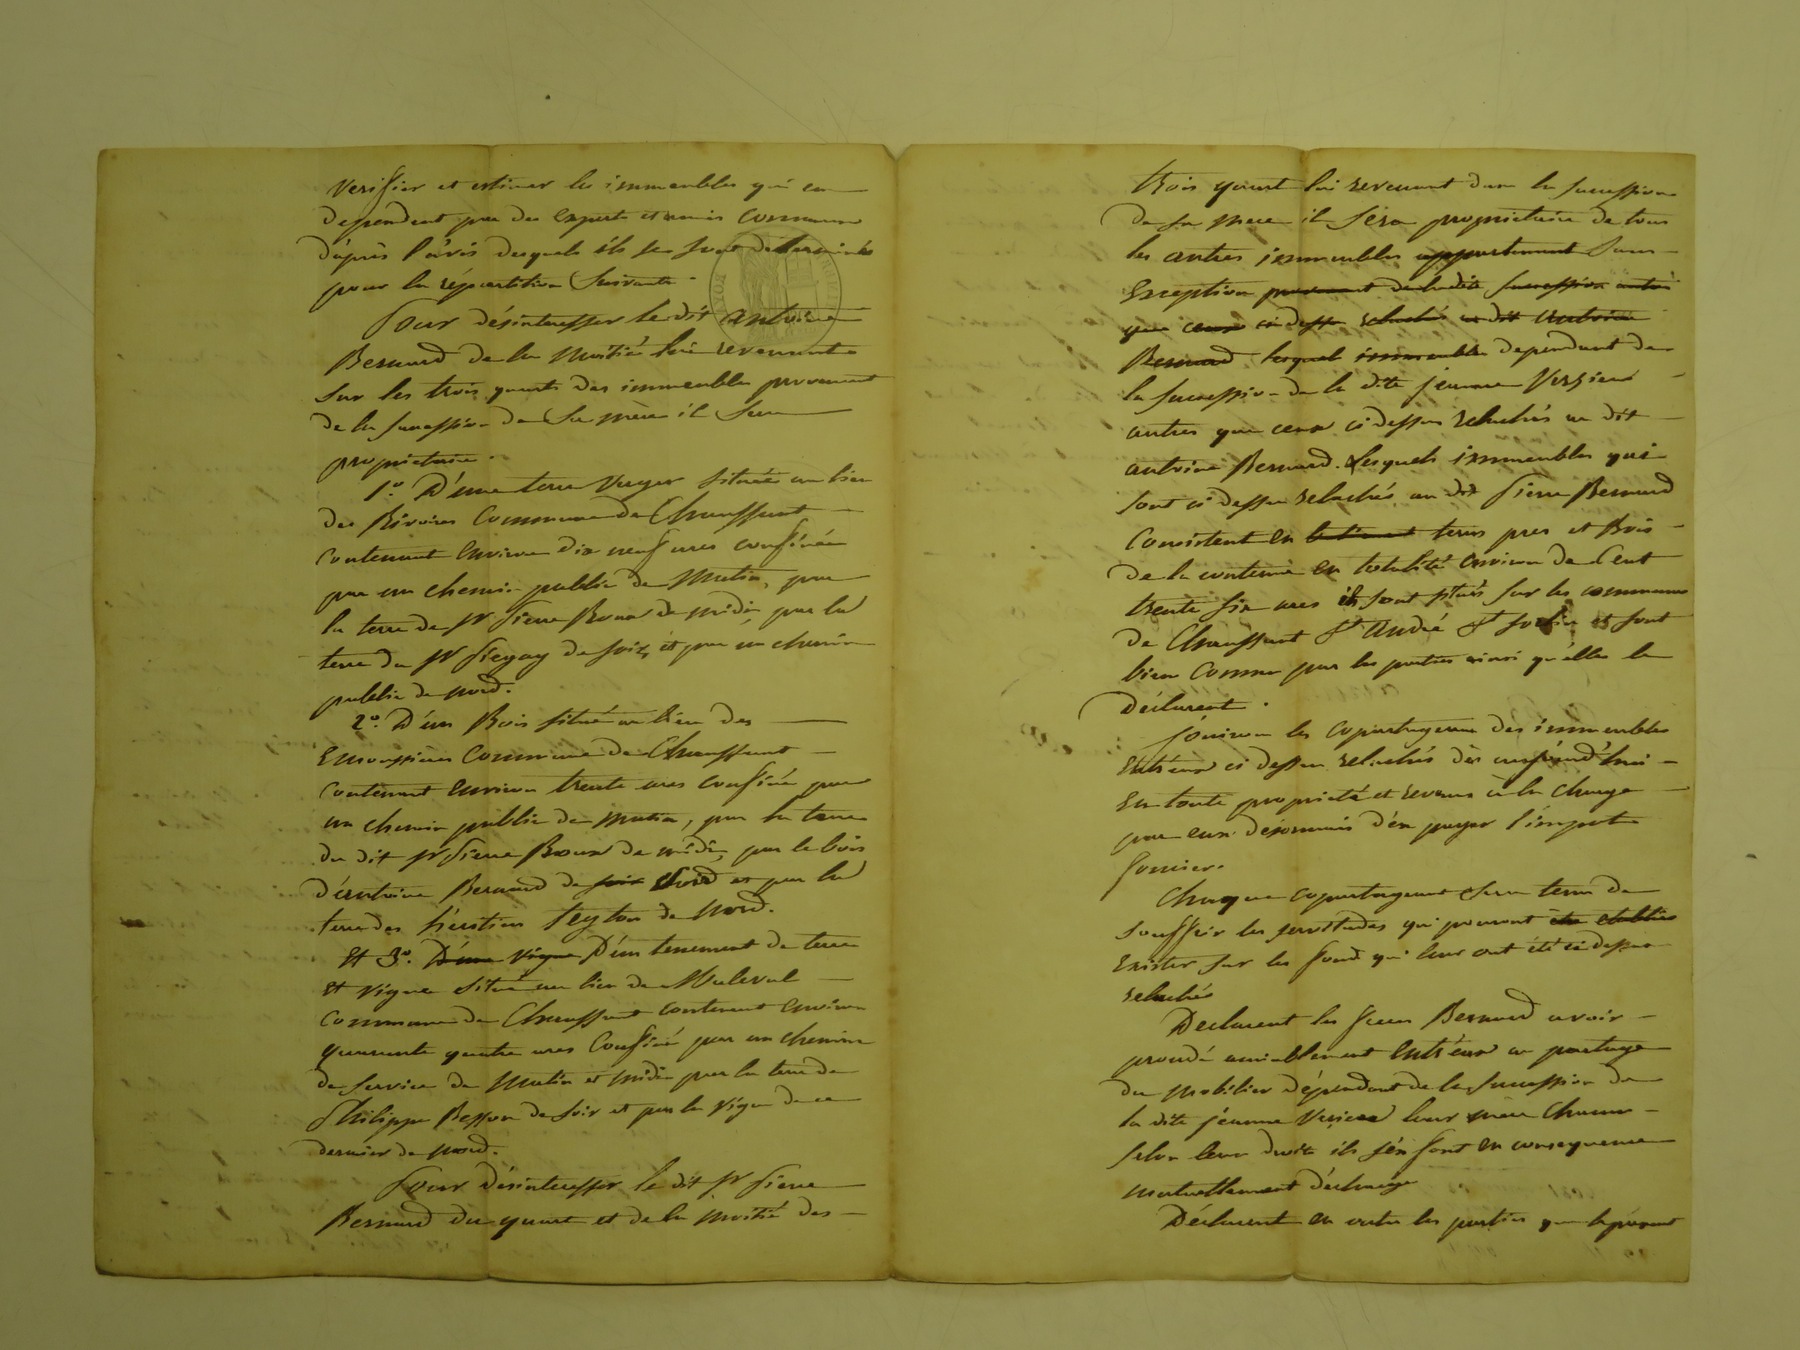 Verifier et estimer les immeubles qui en
dependent par des experts et amis communs
d'après l'avis desquels ils se sont determinés
pour la répartition suivante.
Pour désinteresser le dit antoine
Bernard de la moitié lui revenant
sur les trois quarts des immeubles provenant
de la succession de sa mère il sera
proprietaire.
1º. D'une terre verger située au lieu
des Rivoires Commune de Chaussant
contenant environ dix neuf ares confinée
par un chemin public de matin, par
la terre de Sr Pierre Roux de midi, par la
terre du Sr Piegay de soir, et par un chemin
public de nord.
2º. D'un Bois situé au lieu des
Commune de Chaussant
contenant environ trente ares confiné par
un chemin public de matin, par la terre
du dit Sr Pierre Roux de midi, par le bois
d'antoine Bernard de soir Soir et par la
terre des héritiers Teyton de Nord.
Et 3º. D'une vigne D'un tenement de terre
et vigne situé au lieu de
commune de Chaussant contenant environ
quarante quatre ares Confiné par un chemin
de service de matin et midi par la terre de
Philippe Besson de soir et par la vigne de ce
dernier de nord.
Pour Désinteresser le dit Sr Pierre
Bernard du quart et de la moitié des
trois quart lui revenant dans la succession
de sa mere il sera proprietaire de tous
les autres immeubles appartenant sans
Exception provenant de la dite succession autre
que ceux ci dessus relachés au dit Antoine
Bernard lesquels immeubles dependant de
la succession de la dite jeanne
autres que ceux ci dessus relachés au dit
antoine Bernard. Lesquels immeubles qui
sont ci dessus relachés au dit Pierre Bernard
Consistent en batiment terres pres et Bois
de la contenue en totalité environ de Cent
trente six ares ils sont situés sur les communes
de Chaussant St André St et sont
bien Connu par les parties ainsi qu'elles le
Déclarent.
Jouiront les copartageans des immeubles
Entr'eux ci dessus relachés dès aujourd'hui
En toute proprieté et revenus à la charge
par eux désormais d'en payer l'impot
foncier.
Chaque copartageant sera tenu de
souffrir les servitudes qui pouront être établies
Exister sur les fonds qui leur ont été ci dessus
relachés
Declarent les freres Bernard avoir
procédé amiablement entr'eux au partage
du mobilier dépendant de la succession de
la dite jeanne leur mère Chacun
selon leur droits ils s'en font en consequence
mutuellement décharge
Déclarent en outre les parties que le présent